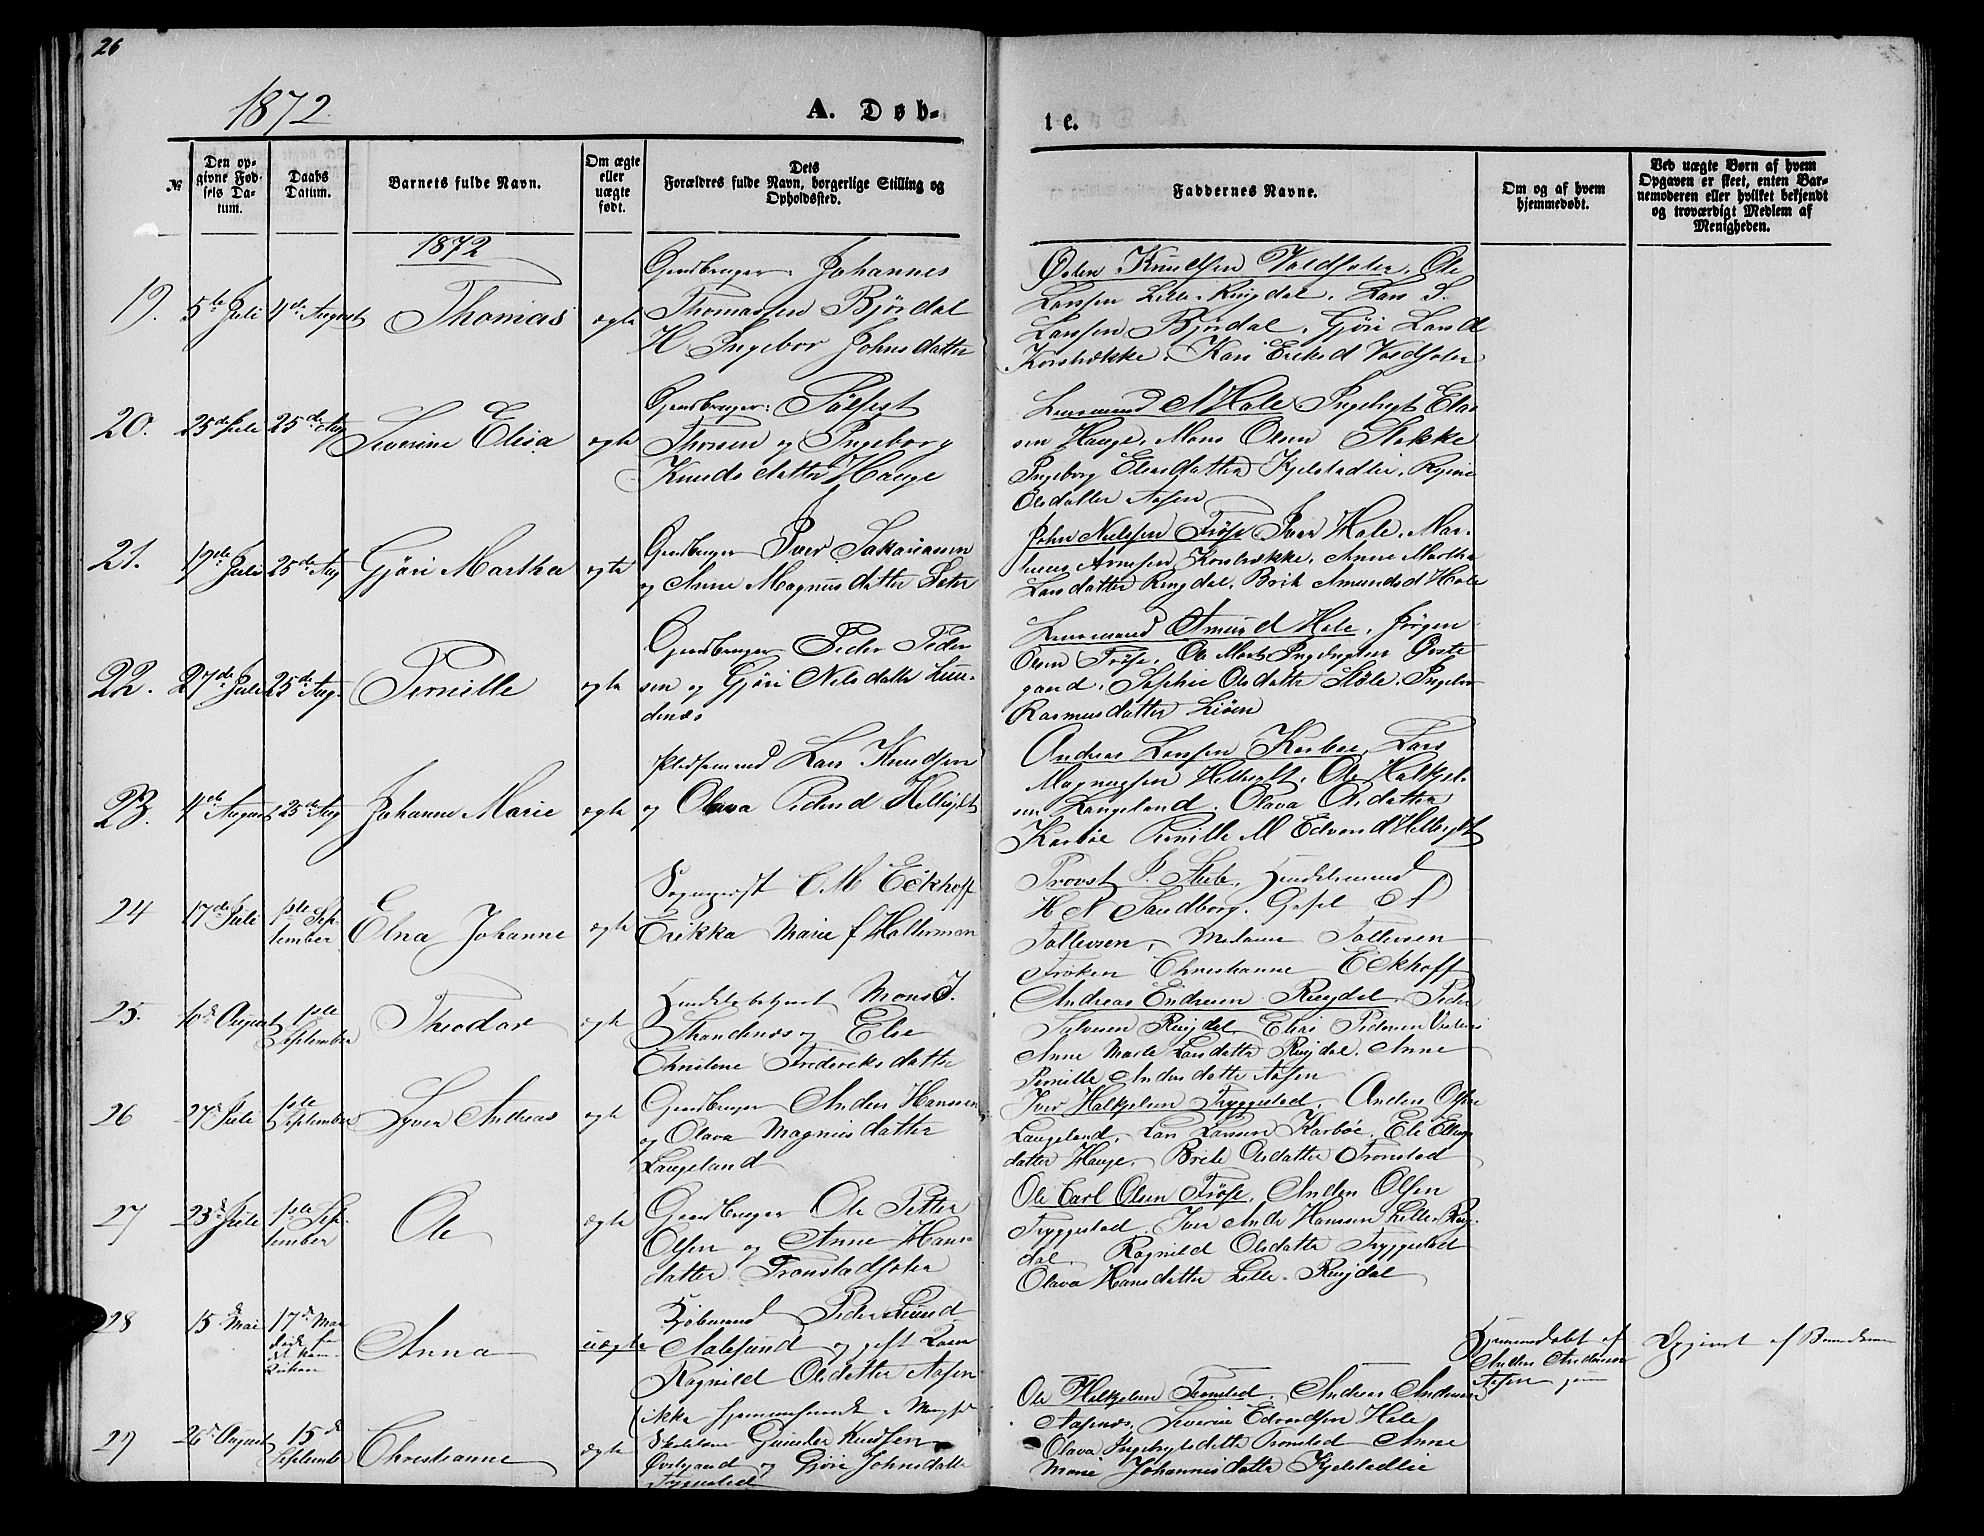 26
1872.
A. Døb-
te.
№
Den op-
givne Fød-
sels Da-
tum.
Daabs
Datum.
Barnets fulde Navn.
Om ægte
eller
uægte
født.
Dets
Forældres fulde Navn, borgerlige Stilling og
Opholdssted.
Faddernes Navne.
Om og af hvem
hjemmedøbt.
Ved uægte Børn af hvem
Opgaven er skeet, enten Bar-
nemoderen eller hvilket bekjendt
og troværdigt Medlem af
Menigheden.
1872
19.
5te Juli
4de August
Thomas
ægte
Gaardbruger Johannes
Thomassen Bjørdal
H Ingebor Johnsdatter
Østen Knudsen Voldsæter, Ole
Larssen Lille-Ringdal, Lars S.
Larssen Bjørdal, Gjøri Larsd
Korsbrække, Kari Eriksd Voldsæter
20.
25de Juli
25de Aug
Severine Elisa
ægte
Gaardbruger: Sølfest
Thorsen og Ingeborg
Knudsdatter Hauge
Lensmand A Hole, Ingebrigt Elias
sen Hauge, Mons Olsen Stokke
Ingeborg Eliasdatter Kjelstadlie,
Olsdatter Aasen
21.
19de Juli
25de Aug
Gjøri Martha
ægte
Gaardbruger Iver Sakariassen
og Anne Magnusdatter Sæter
John Nielssen Frøse, Iver Hole, Mar-
Arnesen Korsbrække, Anne Martha
Larsdatter Ringdal, Brit Amundsd Hole
22.
27de Juli
25de Aug.
Pernille
ægte
Gaardbruger Peder Peder
sen og Gjøri Nilsdatter Lun-
denæs
Lensmand Amund Hole, Jørgen
Olsen Frøse, Ole Mart. Ingebrigtsen Øvste
gaard, Sophie Olsdatter Støle, Ingebor
Rasmusdatter Liøen
23.
4de August
25de Aug
Johanne Marie
ægte
Pladsemand Lars Knudsen
og Olava Pedersd Hellsylt
Andreas Larssen Karbøe, Lars
Magnussen Hellesylt, Ole Halkjel-
sen Langeland, Olava Olsdatter
Karbøe Pernille M Edvardsd Hellesylt
24
17de Juli
1ste Sep-
tember
Elna Johanne
ægte
Sogneprest C M Eckhoff
Erikka Marie f Halterman
Provst P. Stub, Handelsmand
H N Sandborg, Gesel A
Tollevsen, Madame Tollevsen
Frøken Christianne Eckhoff
25.
10de August
1ste
September
Theodor
ægte
Handelsbetjent Mons J.
Strandenæs og Else
Christine Fredriksdatter
Andreas Endresen Ringdal, Peder
Sylvesen Ringdal, Elias Pedersen
Anne Marte Larsdatter Ringdal, Anne
Pernille Andersdatter Aasen
26
27de Juli
1ste
September
Syver Andreas
ægte
Gaardbruger Anders Hanssen
og Olava Magnusdatter
Langeland
Iver Halkjelsen Tryggestad, Anders Olsen
Langeland, Lars Larssen Karbøe, Eli Elling
datter Hauge, Brite Olsdatter Tronstad
27
23de Juli
1ste Sep-
tember
Ole
ægte
Gaardbruger Ole Petter
Olsen og Anne Hans
datter Tronstadsæter
Ole Carl Olsen Frøse, Anders Olsen
Tryggestad, Iver Andr Hanssen Lille-Ring-
dal, Ragnild Olsdatter Tryggestad
Olava Hansdatter Lille-Ringdal
28
15de Mai
17de Mai
Anna
uægte
Kjøbmand Peder Lund
Aalesund og gift Kone
Ragnild Olsdatter Aasen
Hjemmedøbt af
Anders Andersen
Aasen
Opgivet af
29
26de August
15de
September
Christianne
ægte
Gunder Knudsen
Øvstgaard og Gjøri Johnsdatter
Tryggestad
Ole Halkjelsen Tronstad, Andreas Andersen
Aasenæs, Severin Edvardsen Hole
Olava Ingebrigtsdatter Tronstad Anne
Marie Johannisdatter Kjelstadlie